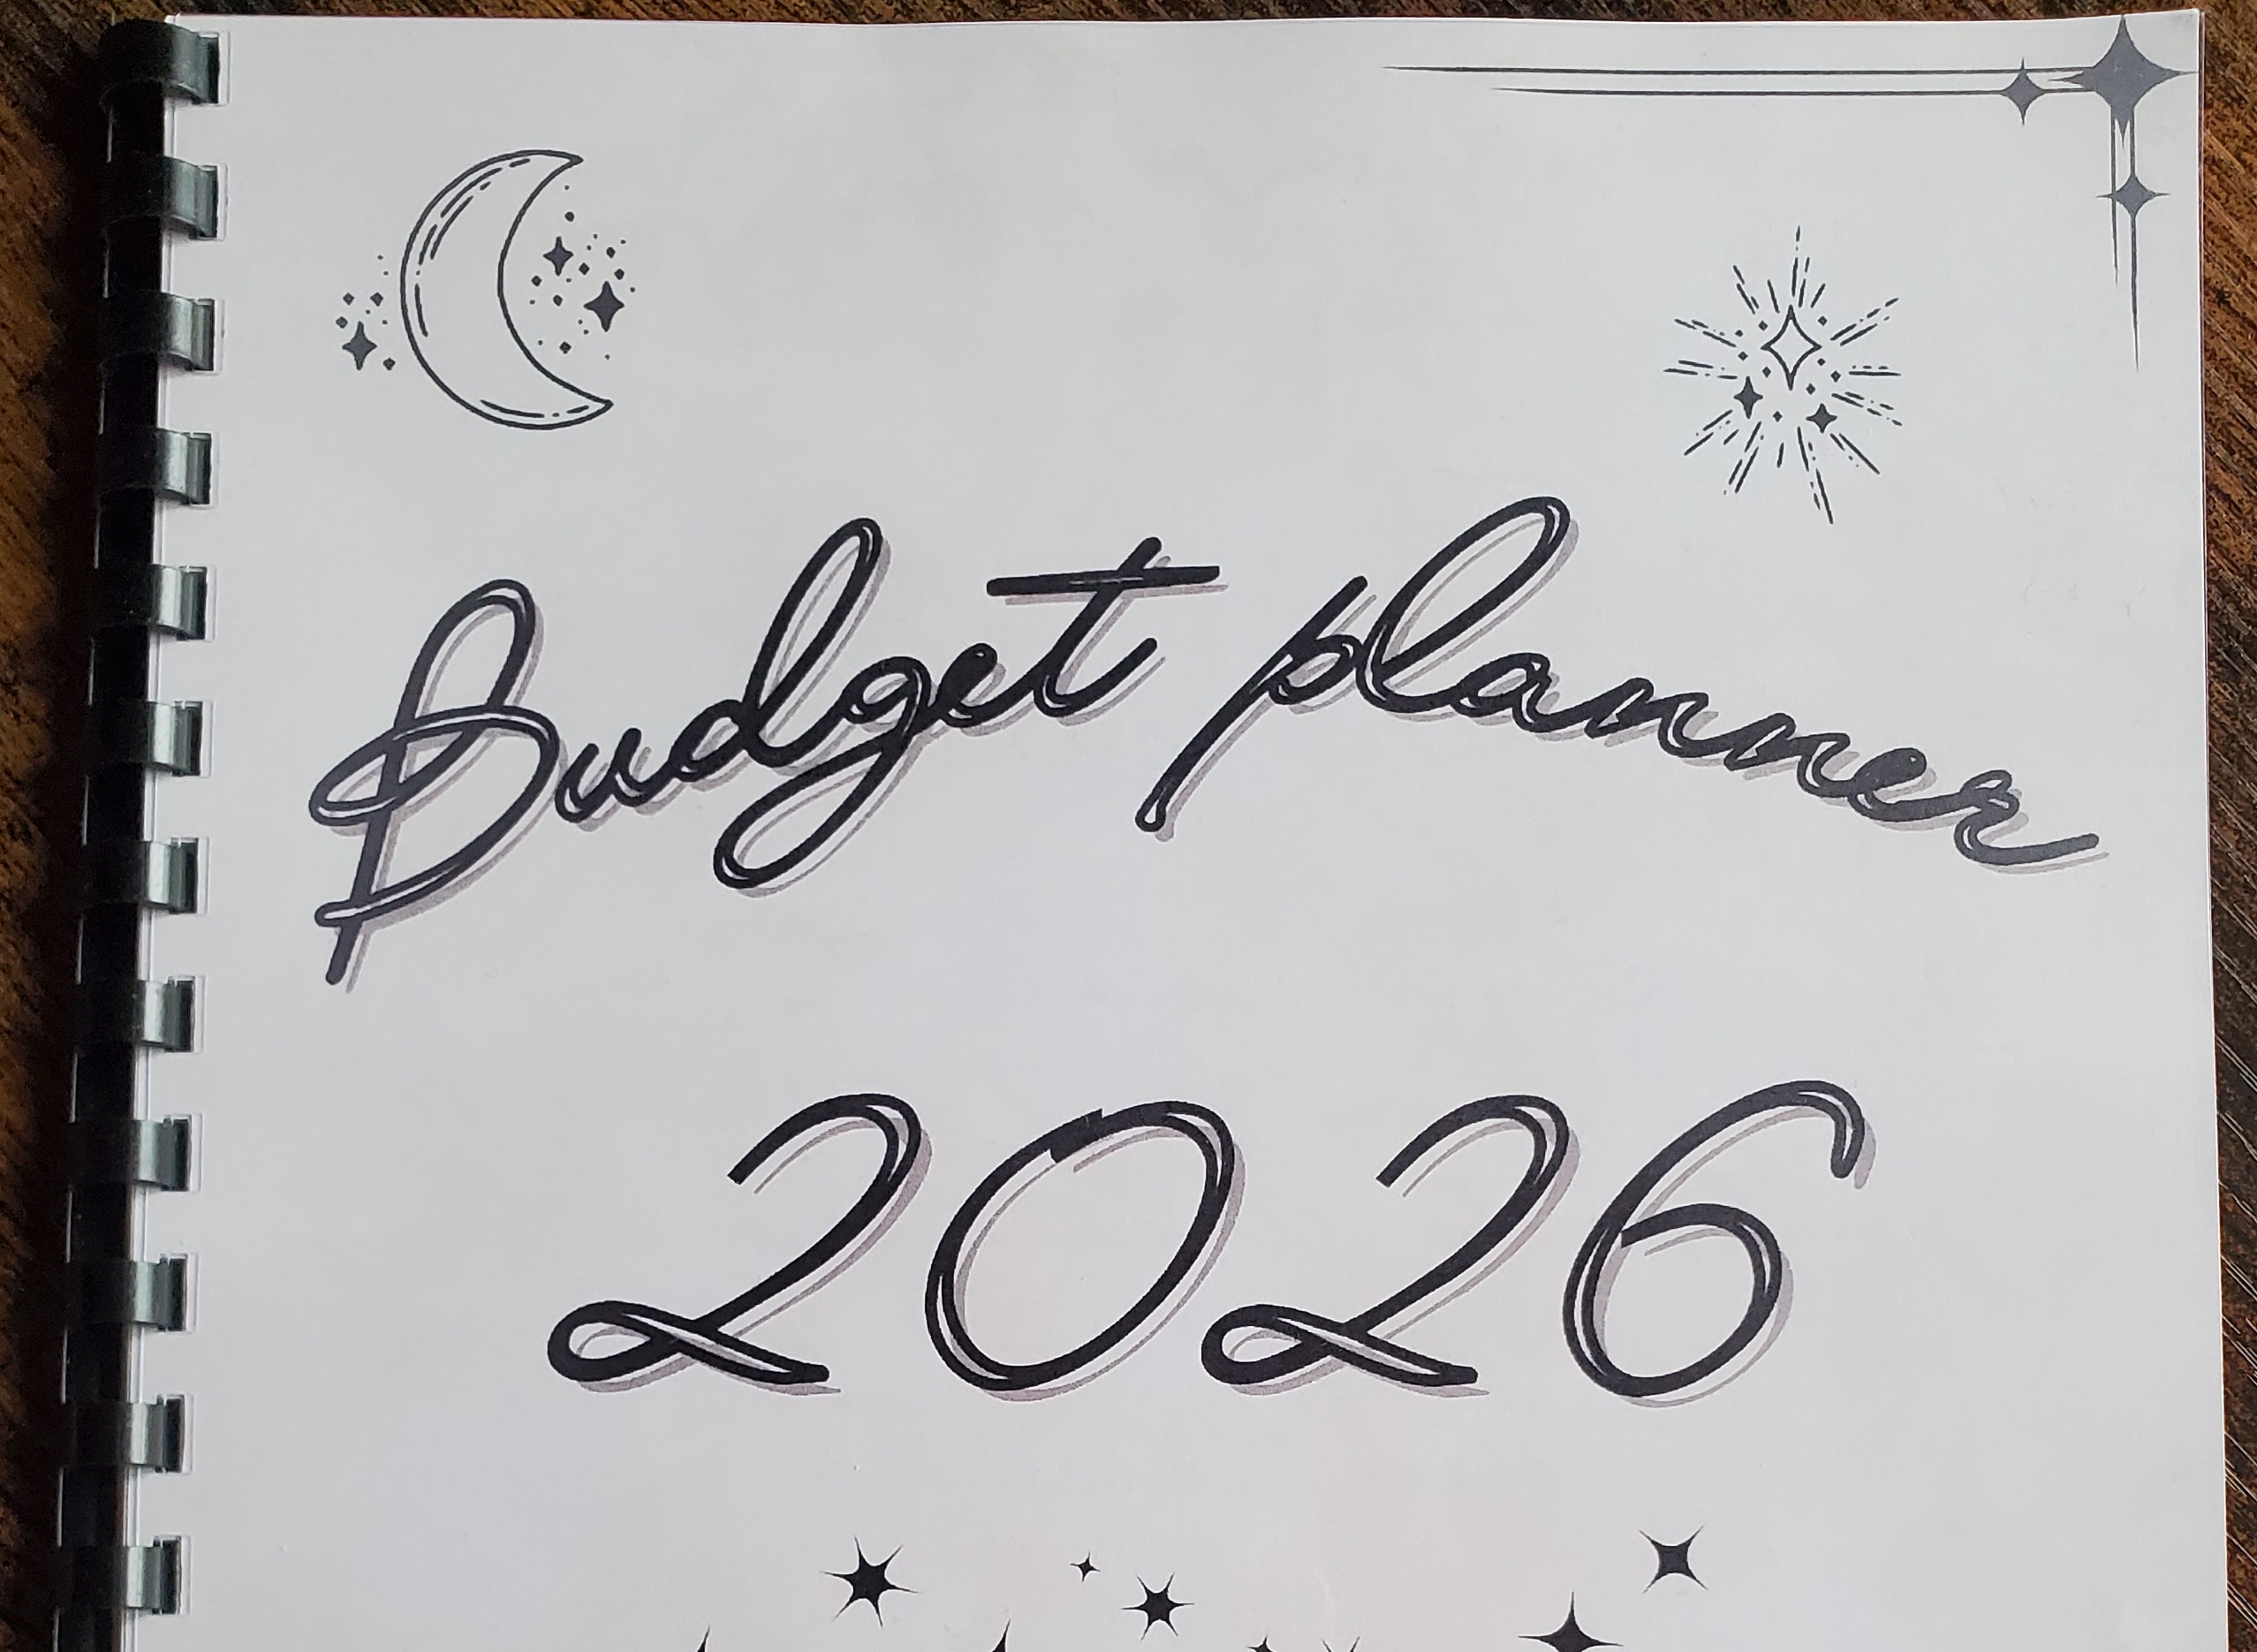 Budget planner
2026